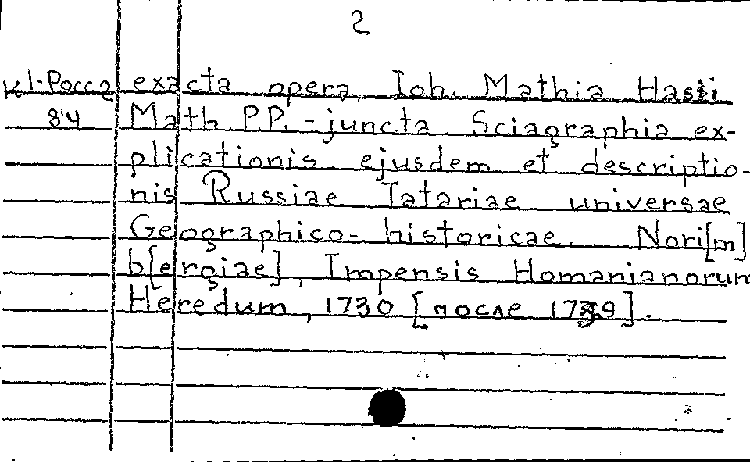 2
К1-Росс2 exacta opera, Ioh. Mathia Hasii
84 Math P.P. - juncta Sciagraphia ex-
plicationis ejusdem et descriptio-
nis Russiae Tatariae universae
Geographico-historicae. Nori[m]
b[ergiae], Impensis Homanianorum
Heredum, 1730 [после 1739].